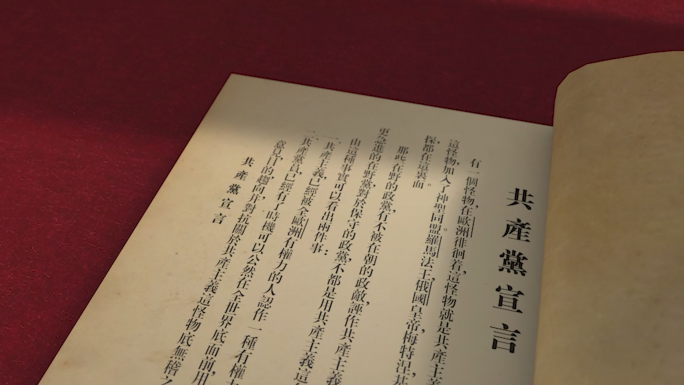 共產黨宣言
有一個怪物,在歐洲徘徊着,這怪物就是共產主
這怪物加入了神聖同盟羅馬法王,俄國皇帝,梅特涅,基
探都在這裏面
那些在野的政黨,有不被在朝的政敵,誣作共產主
更急進的在野黨,對於保守的政黨,不都是用共產主義這
由這種事實可以看出兩件事:
一、共產主義已經被全歐洲有權力的人認作一種有權
二、共產黨員,已經有了時機可以公然在全世界底面前,用
意見,目的,趨向,對抗關於共產主義這怪物底無稽之
共產黨宣言